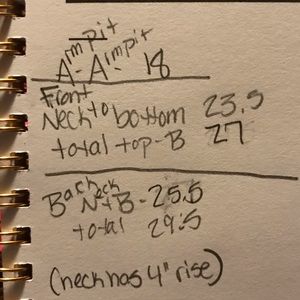 Armpit - Armpit - 18
Front
Neck to bottom 23.5
total top-B 27
Back Neck
N+B - 25.5
total 29.5
(neck has 4" rise)